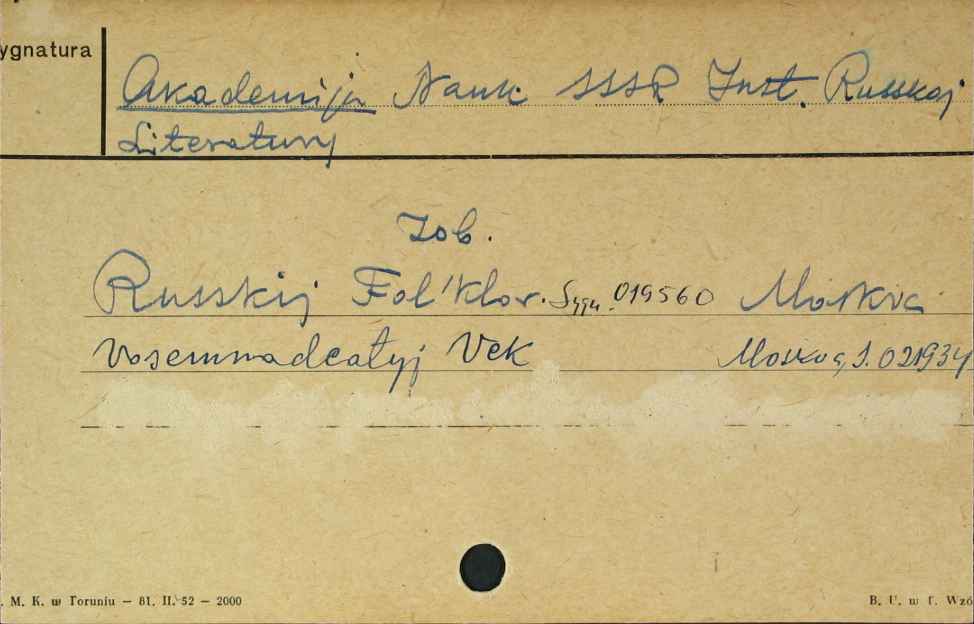 ygnatura
Akademija Nauk SSSR Inst. Russkoj
Literatury
Zob.
Russkij Fol'klor. Sygn. 019560 Moskva
Vosemnadcatyj Vek Moskva, S. 021934
. M. K. w Toruniu — 81. II. 52 — 2000
B. U. w T. Wzó